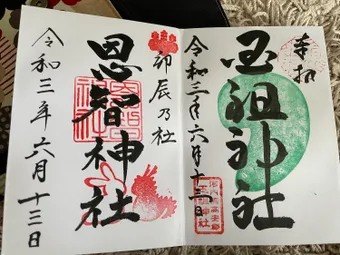 奉拝
国祖神社
令和三年六月十三日
卯辰乃社
恩智神社
令和三年六月十三日